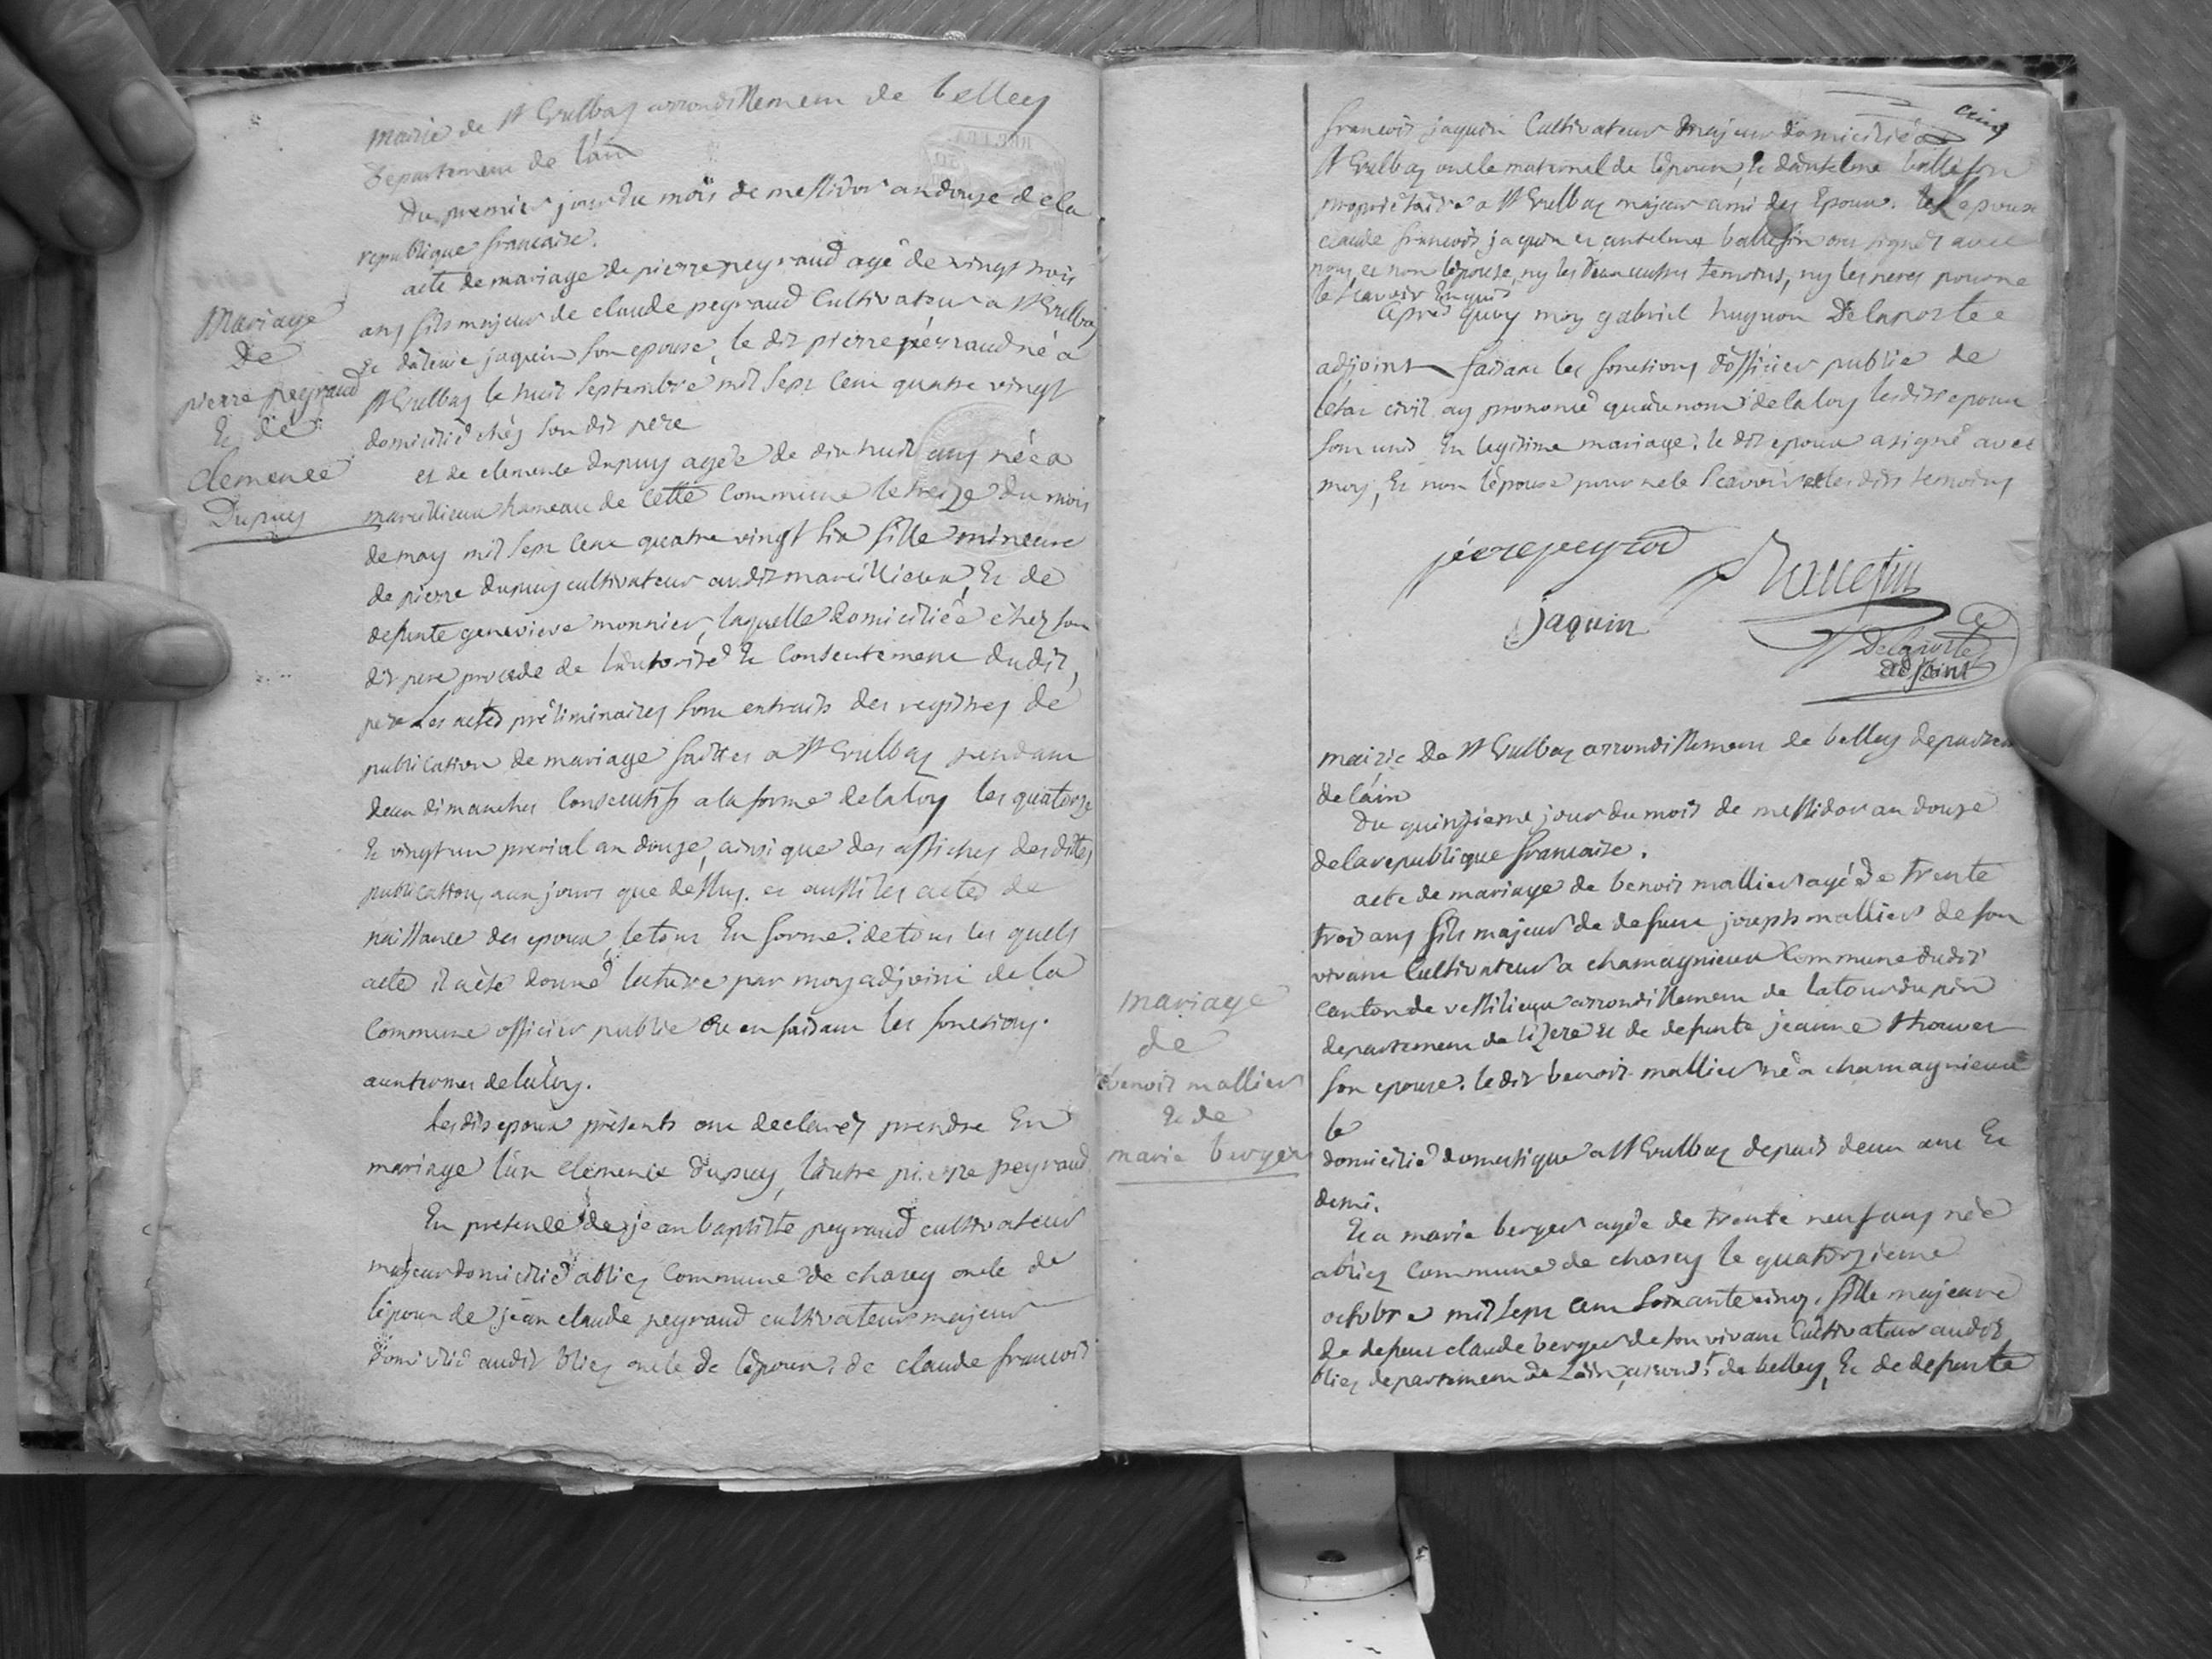 mairie de St Vulbaz arrondissemen de belley
departemen de l'ain
du premier jour du mois de messidor an douze de la
republique francaise.
acte de mariage de pierre peyraud agé de vingt trois
ans fils majeur de claude peyraud Cultivateur a St Vulbaz
jaquin son epouse, le dit pierre peyraud né a
St Vulbaz le huit Septembre mil Sept Cent quatre vingt
domicilié chéz son dit pere
et de clemence dupuy agée de dix huit ans née a
marcillieux hameau de Cette Commune le treize du mois
de may mil Sept Cent quatre vingt Six fille mineure
de pierre dupuy cultivateur audit marcillieux, Et de
defunte genevieve monnier, laquelle domiciliée chéz son
dit pere procede de l'autorité Et Consentement dudit
pere Les actes préliminaires Sont extraits des registres de
publication de mariage faittes a St Vulbaz pendant
deux dimanches Consecutifs a la forme de la loy les quatorze
Et vingt un prerial an douze, ainsi que des affiches des dittes
publications aux jours que dessus. et aussi les actes de
naissance des epoux, le tout En forme. de tous les quels
acte il a été donné lecture par moy adjoint de la
Commune officier public ou en faisant les fonctions.
aux termes de la loy.
Les dits epoux présents ont declarés prendre En
mariage l'un clemence dupuy, l'autre pierre peyraud
En presence de jean baptiste peyraud cultivateur
majeur domicilié a bliez Commune de chazey oncle de
l'epoux de jean claude peyraud cultivateur majeur
domicilié audit bliez oncle de l'epoux, de claude francois
Mariage
De
pierre peyraud
Et de
clemence
Dupuy
cinq
francois jaquin Cultivateur majeur domicilié a
St Vulbaz oncle maternel de l'epoux, Et d'antelme ballefin
propriétaire a St Vulbaz majeur ami des Epoux. Les epoux
claude francois jaquin et antelme ballefin ont signés avec
nous, et non l'epouse, ny les deux autres temoins, ny les peres pour ne
le Scavoir Enquis
après quoy moy gabriel hugnon Delaporte
adjoint faisant les fonctions d'officier public de
l'etat civil ay prononcé qu'au nom de la loy les dits epoux
Sont unis En legitime mariage. le dit epoux a signé avec
moy, Et non l'epouse pour ne le Scavoir et les dits temoins
jaquin
Ballefin
Delaporte
adjoint
mairie De St Vulbaz arrondissemen de belley departem
de l'ain
Du quinzieme jour du mois de messidor an douze
de la republique francaise.
acte de mariage de benoit mallier agé de trente
trois ans fils majeur de defunt joseph mallier de son
vivant Cultivateur a chamagnieux Commune dudit
canton de vessilieux arrondissemen de latourdupin
departemen de l'izere et de defunte jeanne
son epouse. le dit benoit mallier né a chamagnieux
le
domicilié domestique a St Vulbaz depuis deux ans Et
demi.
Et a marie berger agée de trente neuf ans née
a bliez Commune de chazey le quatorzieme
octobre mil Sept Cent Soixante cinq, fille majeure
de defunt claude berger de son vivant Cultivateur audit
bliez departemen de L'ain, arrond.t de belley, Et de defunte
mariage
de
benoit mallier
Et de
marie berger